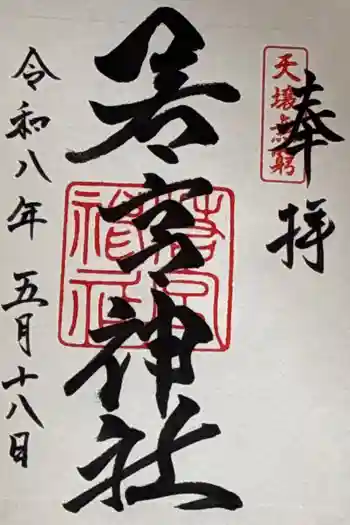 奉拝
天壌無窮
若宮神社
令和八年五月十八日